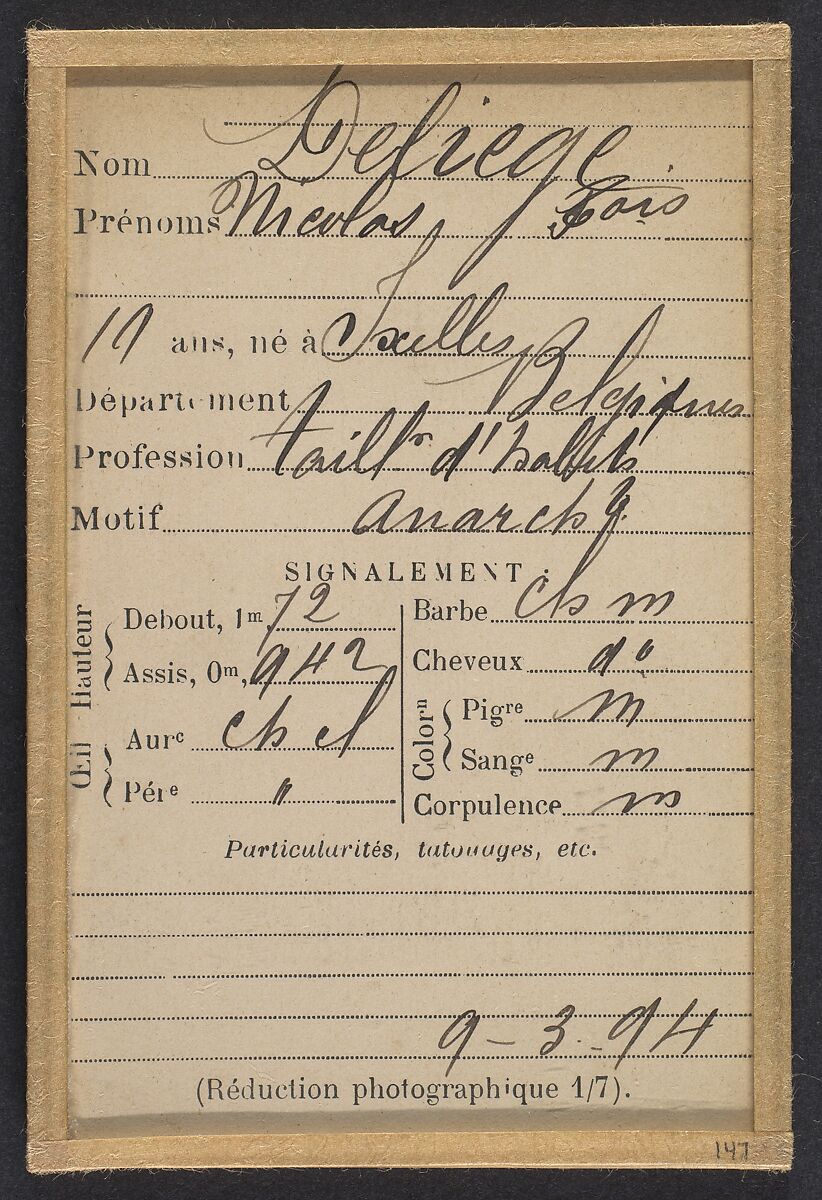 Nom Deliege
Prénoms Nicolas, Fçois
ans, né à Ixelles
Département Belgique
Profession taillr d'habits
Motif anarchie
SIGNALEMENT :
Hauteur
Debout, 1m, 72
Assis, 0m, 942
Œil
Aure ch cl
Pére "
Barbe ch m
Cheveux do
Colorn
Pigre m
Sange m
Corpulence m
Particularités, tatouages, etc.
9-3-94
(Réduction photographique 1/7).
147